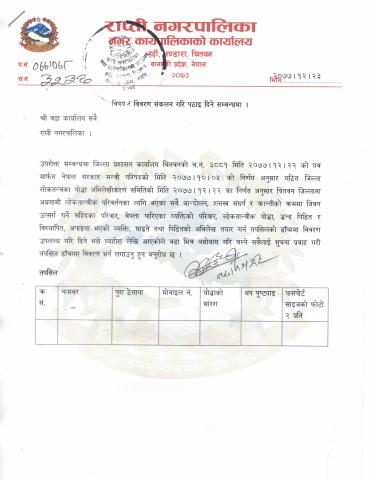 राप्ती नगरपालिका
नगर कार्यपालिकाको कार्यालय
भण्डारा, चितवन
बागमती प्रदेश, नेपाल
२०७३
प.सं. ०७७/०७८
च.नं. ३२३०
मिति: २०७७/१२/२३
विषय : विवरण संकलन गरि पठाइ दिने सम्बन्धमा ।
श्री वडा कार्यालय सबै
राप्ती नगरपालिका ।
उपरोक्त सम्बन्धमा जिल्ला प्रशासन कार्यालय चितवनको च.नं. ३८८१ मिति २०७७/१२/२२ को पत्र
मार्फत नेपाल सरकार मन्त्री परिषदको मिति २०७७/१०/०५ को निर्णय अनुसार गठित जिल्ला
लोकतन्त्रका योद्धा अभिलेखीकरण समितिको मिति २०७७/१२/२२ का निर्णय अनुसार चितवन जिल्लामा
अग्रगामी लोकतान्त्रीक परिवर्तनका लागि भएका सबै आन्दोलन, सशस्त्र संघर्ष र क्रान्तीको क्रममा जिवन
उत्सर्ग गर्ने सहिदका परिवार, बेपत्ता पारिएका व्यक्तिको परिवार, लोकतान्त्रीक योद्धा, द्वन्द पिडित र
विस्थापित, अपाङ्गता भएको व्यक्ति, घाइते तथा पिडितको अभिलेख तयार गर्न तपसिलको ढाँचामा विवरण
उपलव्ध गरि दिने भन्ने व्यहोरा लेखि आएकोले वडा भित्र बसोवास गरि बस्ने सबैलाई सुचना प्रवाह गरी
तपसिल ढाँचामा विवरण भर्न लगाउनु हुन अनुरोध छ ।
तपसिल
क्र सं. नामथर पुरा ठेगाना मोबाइल नं. योद्धाको सारंश थप पुष्ट्याइ पासपोर्ट साइजको फोटो २ प्रति